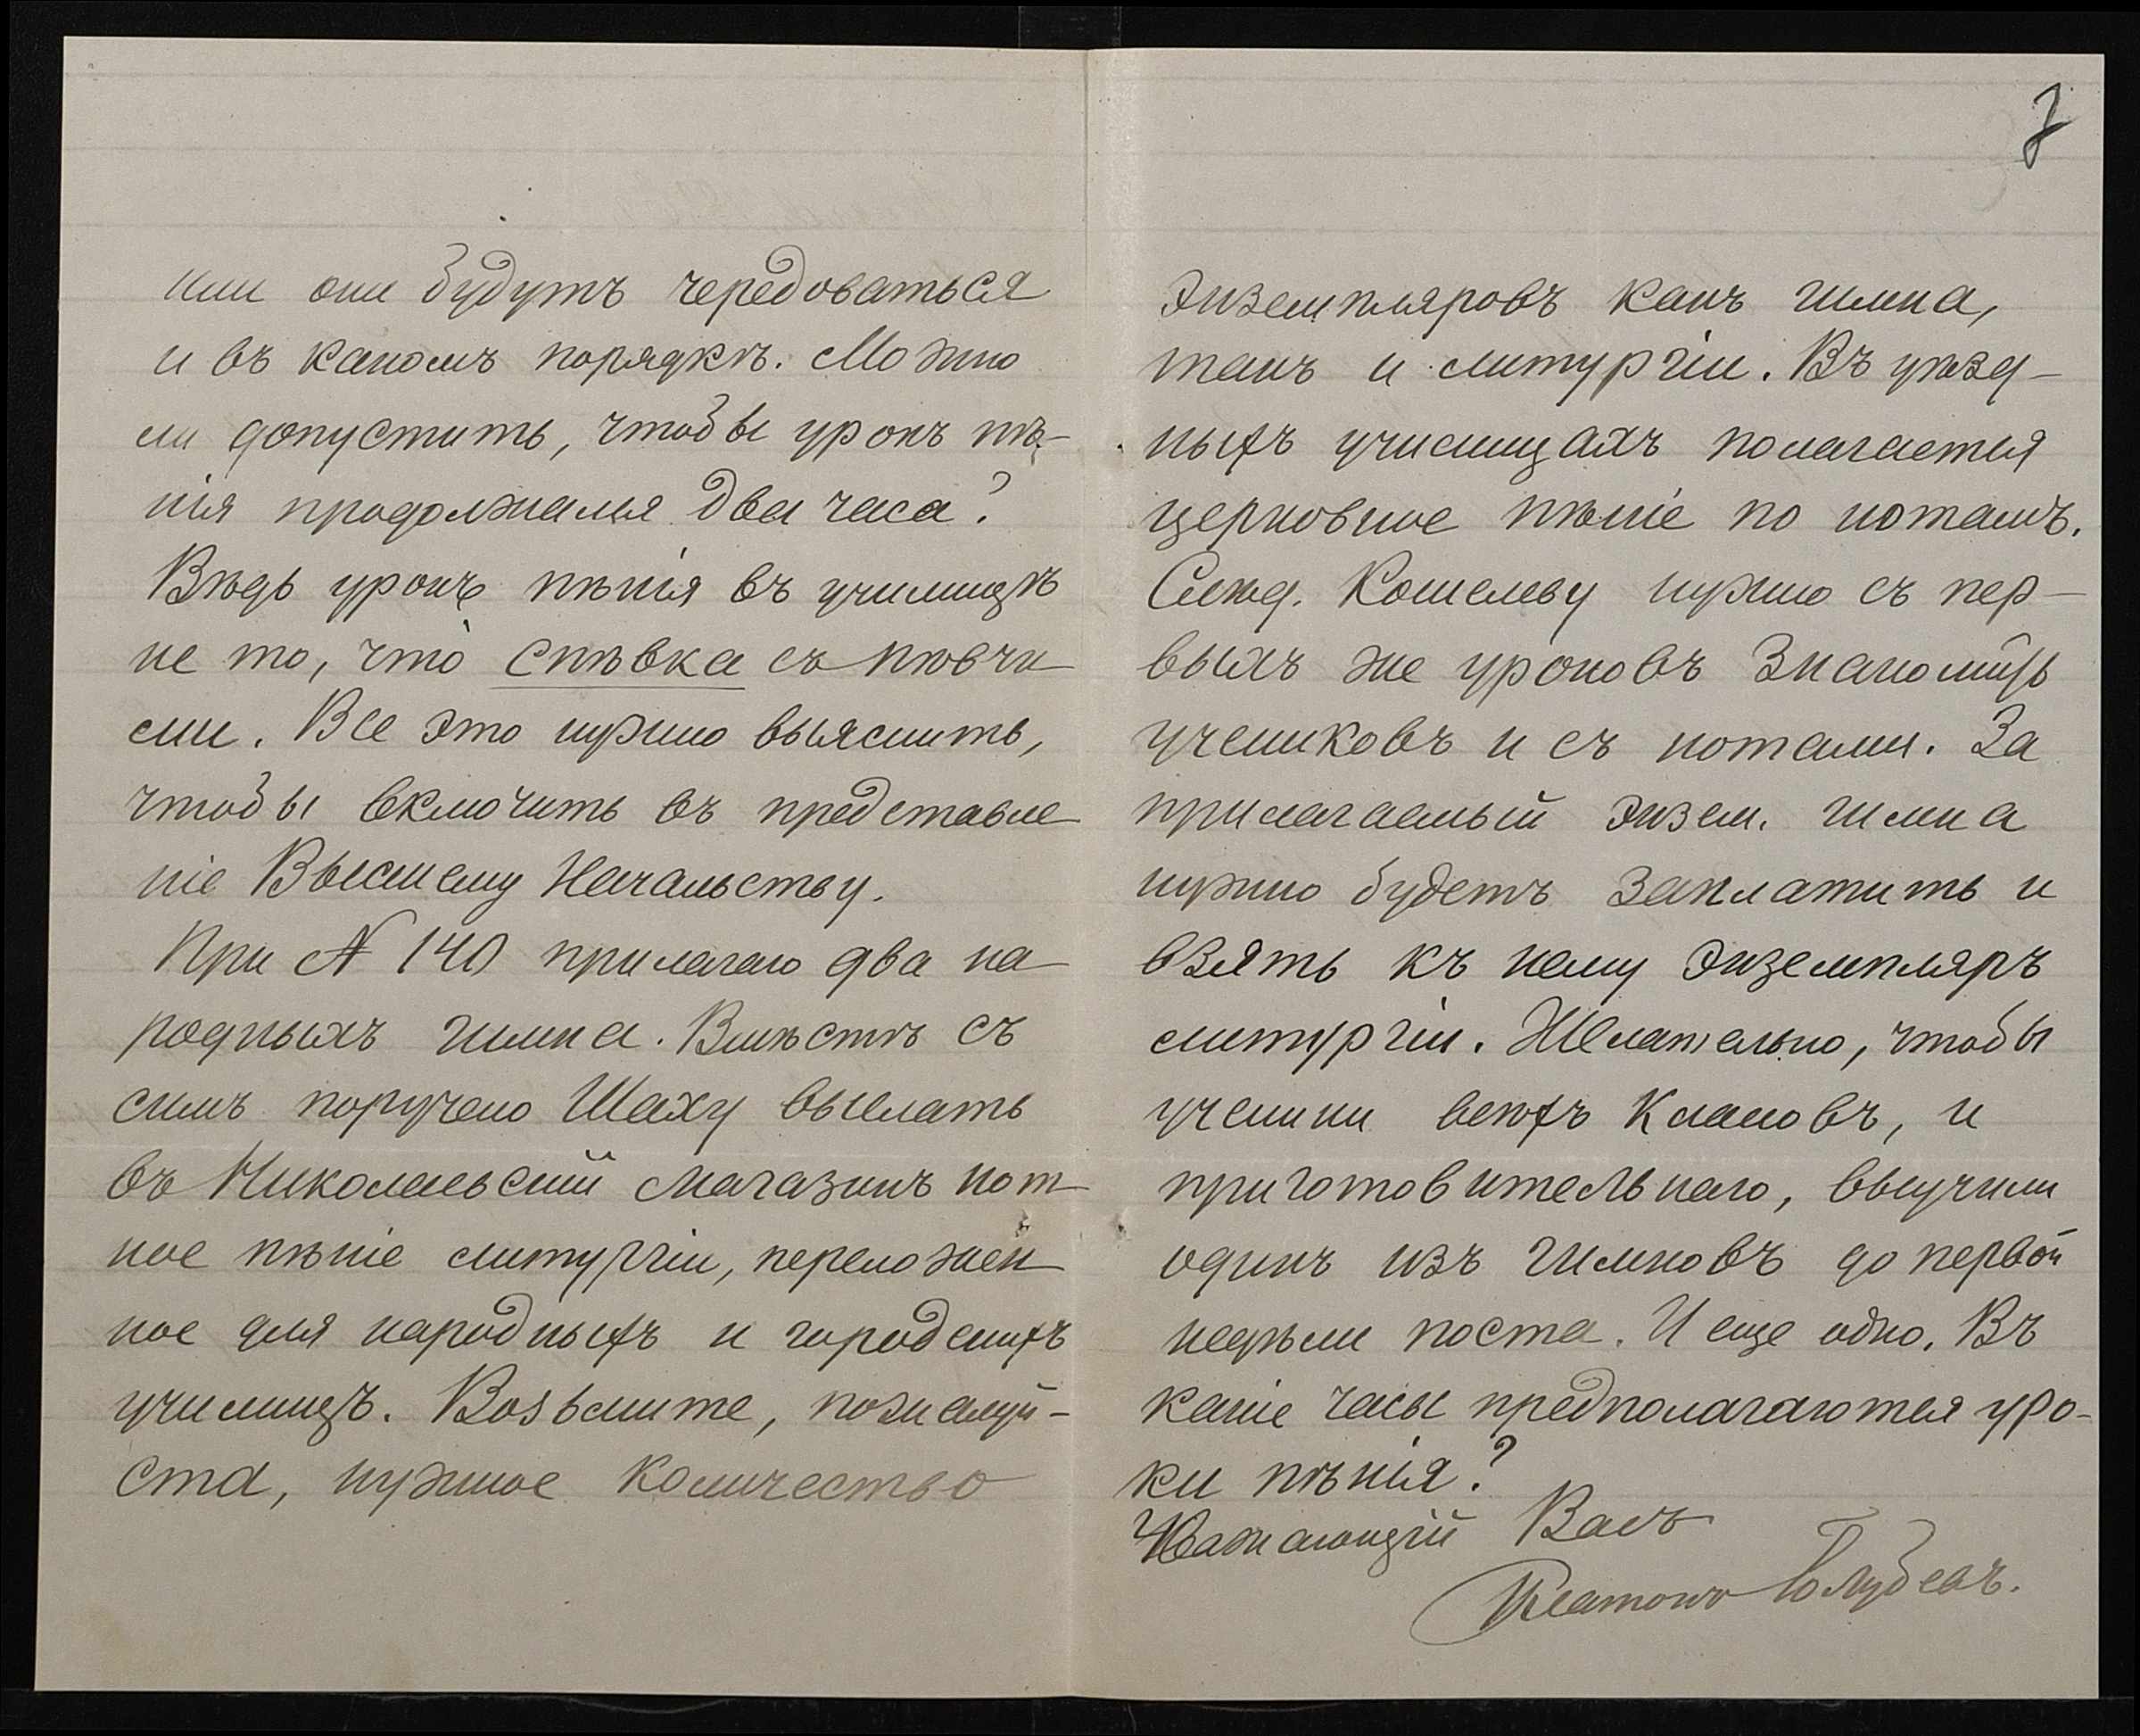 или они будутъ чередоваться
и въ какомъ порядкѣ. Можно
ли допустить, чтобы урокъ пѣ-
нія продолжался два часа?
Вѣдь урокъ пѣнія въ училищѣ
не то, что спѣвка съ пѣвчи
ми. Все это нужно выяснить,
чтобы включить въ представле
ніе Высшему Начальству.
При № 140 прилагаю два на
родныхъ гимна. Вмѣстѣ съ
симъ поручено Шаху выслать
въ Николаевскій магазинъ нот
ное пѣніе литургіи, переложен
ное для народныхъ и городскихъ
училищъ. Возьмите, пожалуй-
ста, нужное количество
7
экземпляровъ какъ гимна,
такъ и литургіи. Въ уѣзд-
ныхъ училищахъ полагается
церковное пѣніе по нотамъ.
Слѣд. Кошелеву нужно съ пер-
выхъ же уроковъ знакомить
учениковъ и съ нотами. За
прилагаемый экзем. гимна
нужно будетъ заплатить и
взять къ нему экземпляръ
литургіи. Желательно, чтобы
ученики всѣхъ классовъ, и
приготовительнаго, выучили
одинъ изъ гимновъ до первой
недѣли поста. И еще одно. Въ
какіе часы предполагаются уро-
ки пѣнія?
Уважающій Васъ
Платонъ Голубевъ.